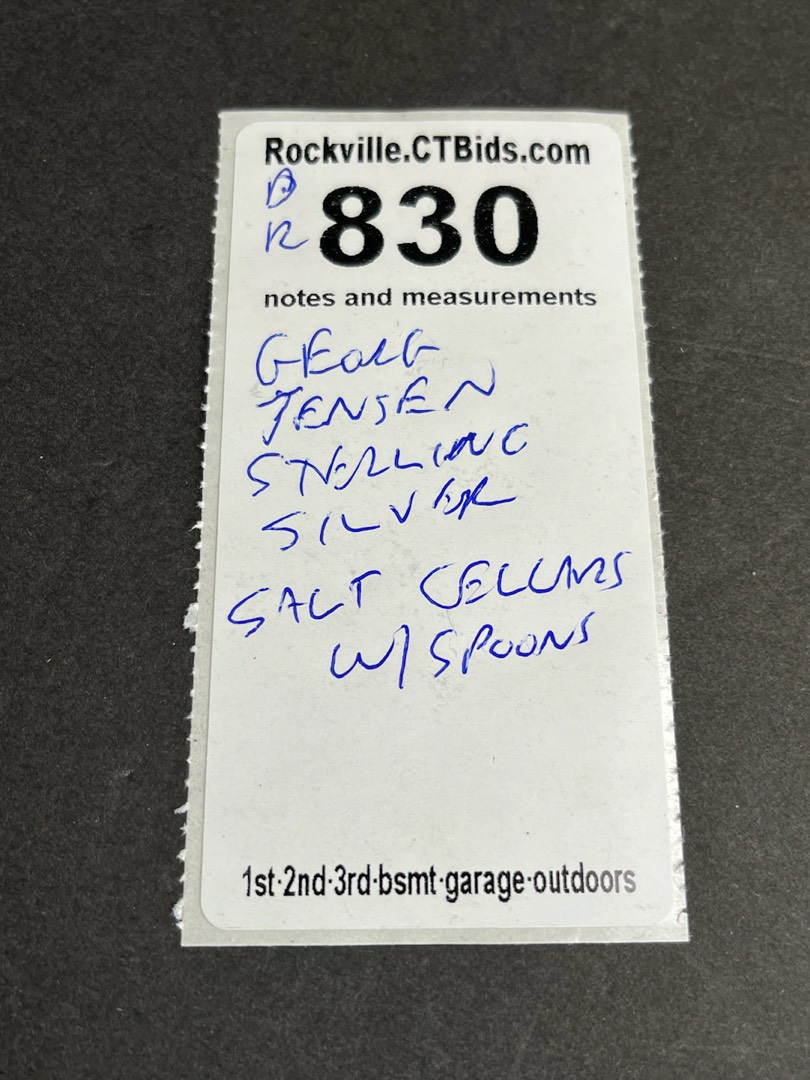 Rockville.CTBids.com
DR 830
notes and measurements
GEORG
JENSEN
STERLING
SILVER
SALT CELLARS
W/ SPOONS
1st·2nd·3rd·bsmt·garage·outdoors